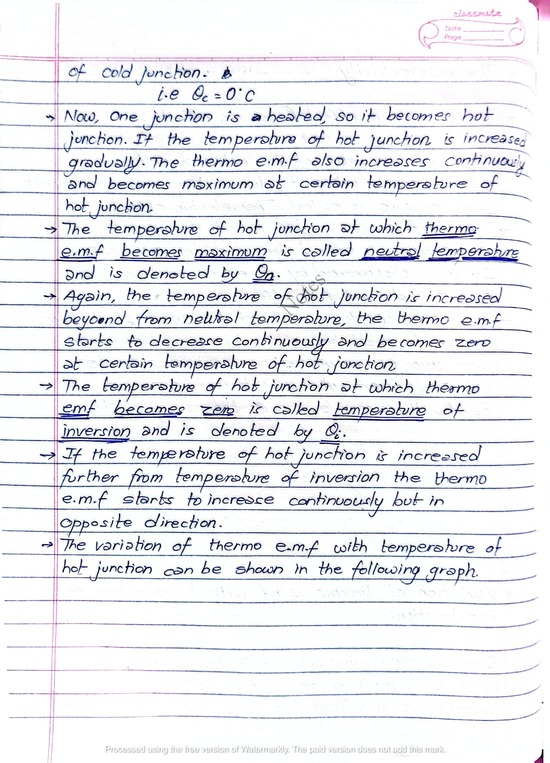 classmate
Date
Page
of cold junction.
i.e θc = 0°C
→ Now, one junction is heated, so it becomes hot
junction. If the temperature of hot junction is increased
gradually. The thermo e.m.f also increases continuously
and becomes maximum at certain temperature of
hot junction.
→ The temperature of hot junction at which thermo
e.m.f becomes maximum is called neutral temperature
and is denoted by θn.
→ Again, the temperature of hot junction is increased
beyond from neutral temperature, the thermo e.m.f
starts to decrease continuously and becomes zero
at certain temperature of hot junction.
→ The temperature of hot junction at which thermo
emf becomes zero is called temperature of
inversion and is denoted by θi.
→ If the temperature of hot junction is increased
further from temperature of inversion the thermo
e.m.f starts to increase continuously but in
opposite direction.
→ The variation of thermo e.m.f with temperature of
hot junction can be shown in the following graph.
Notes
Processed using the free version of Watermarkly. The paid version does not add this mark.